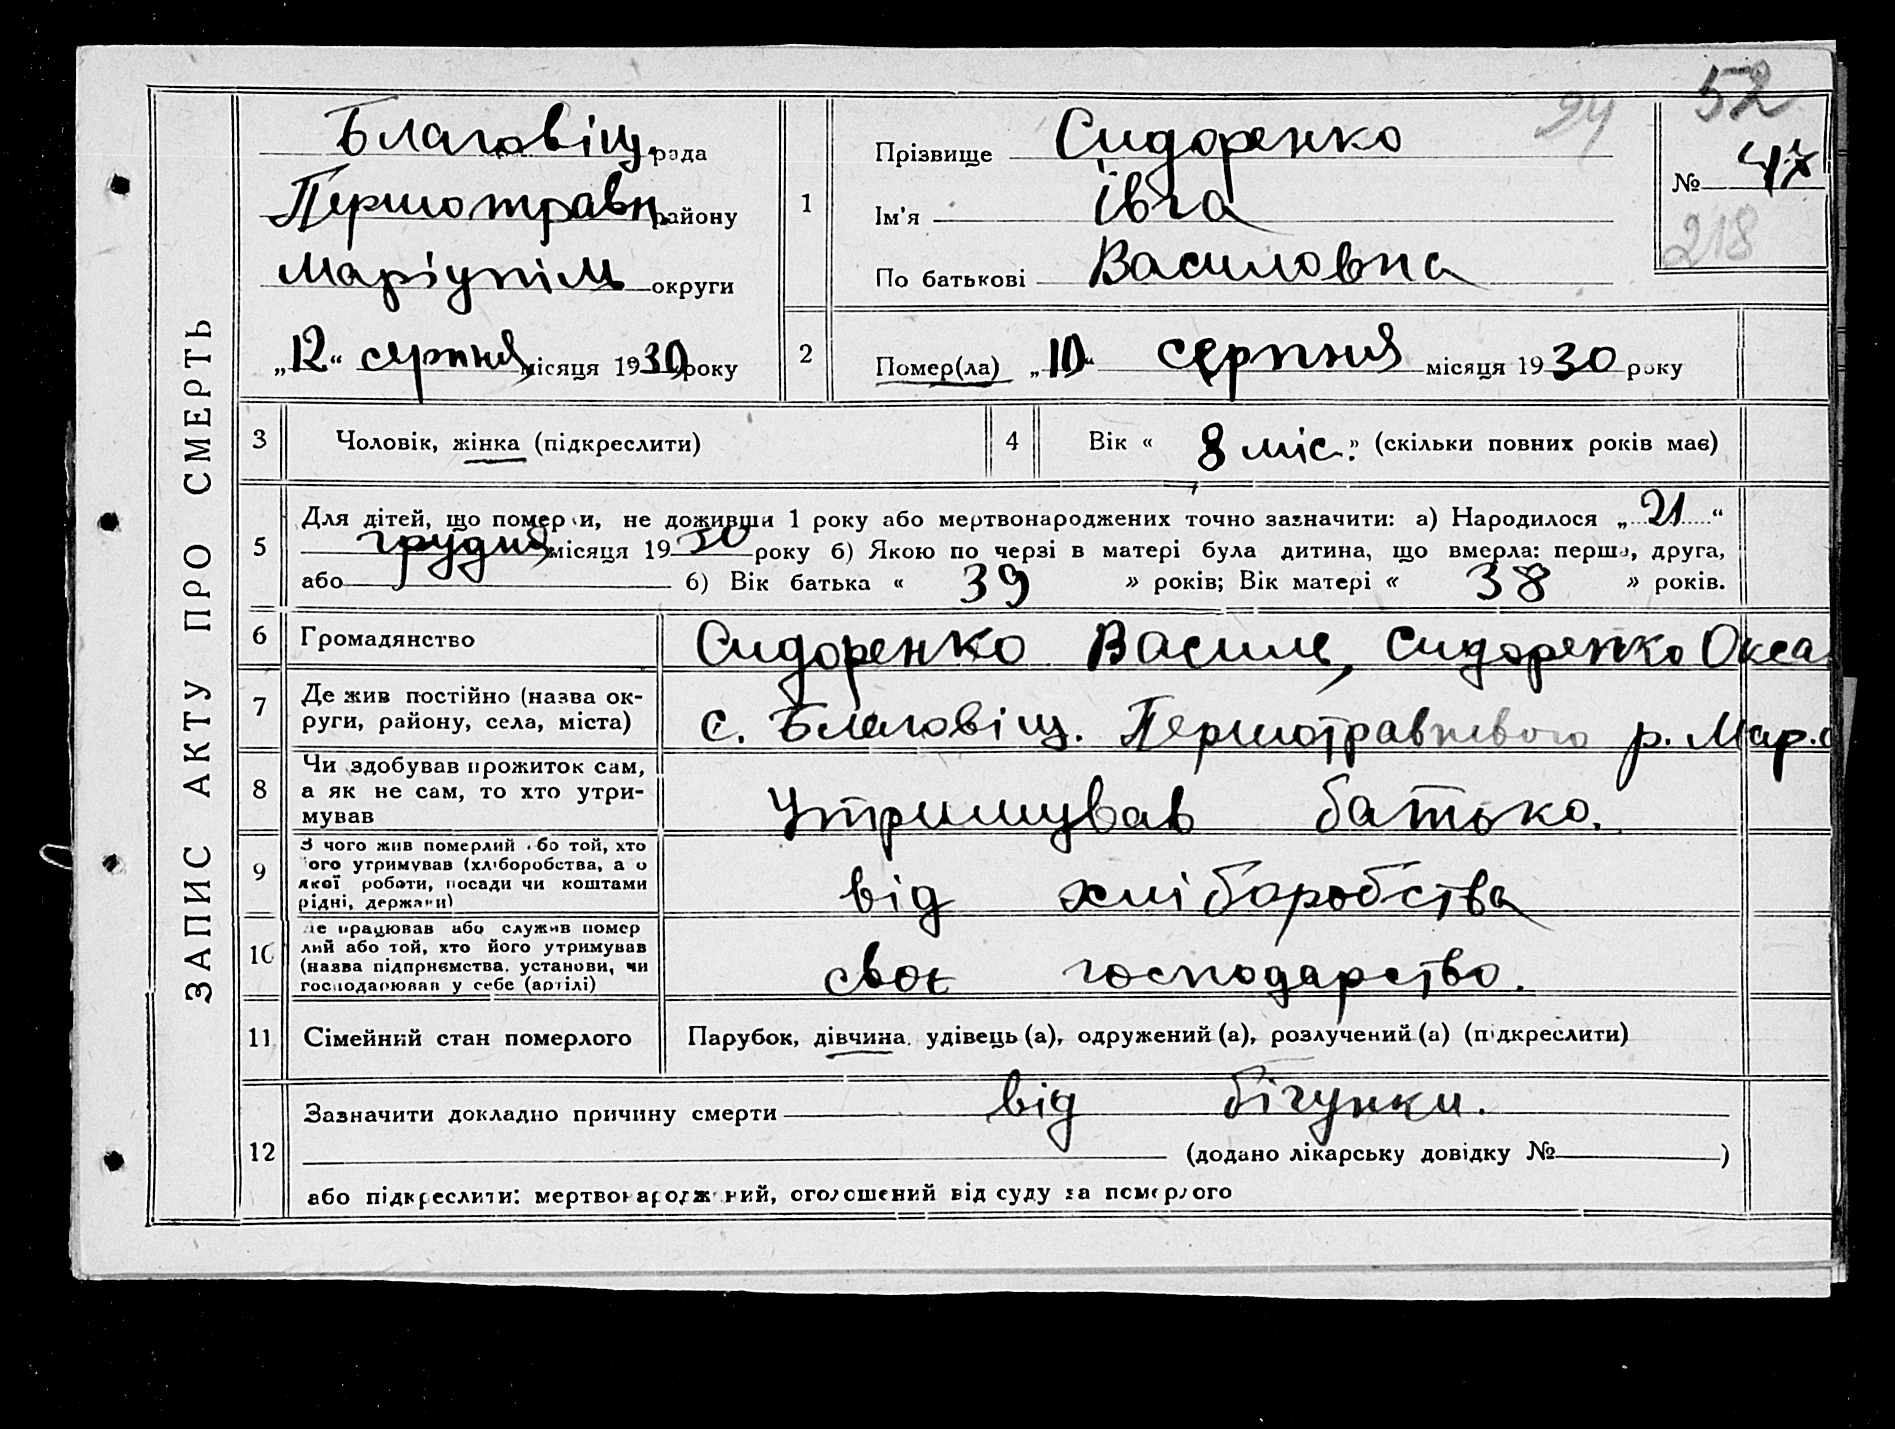 52
94
ЗАПИС АКТУ ПРО СМЕРТЬ
Благовіщ. рада
Першотравн. району
Маріупіль округи
„12“ серпня місяця 1930 року
1
Прізвище Сидоренко
Ім'я Івга
По батькові Василовна
№ 47
218
2
Помер(ла) „10“ серпня місяця 1930 року
3 Чоловік, жінка (підкреслити)
4 Вік « 8 міс.» (скільки повних років має)
5
Для дітей, що померли, не доживши 1 року або мертвонароджених точно зазначити: а) Народилося „21“
грудня місяця 1930 року б) Якою по черзі в матері була дитина, що вмерла: перша, друга,
або 6) Вік батька « 39 » років; Вік матері « 38 » років.
6 Громадянство Сидоренко Василь, Сидоренко Окса
7
Де жив постійно (назва ок-
руги, району, села, міста)
с. Благовіщ. Першотравневого р. Мар. о
8
Чи здобував прожиток сам,
а як не сам, то хто утри-
мував
Утримував батько.
9
З чого жив померлий або той, хто
його утримував (хліборобства, а о
якої роботи, посади чи коштами
рідні, держави)
від хліборобства
10
Де працював або служив помер
лий або той, хто його утримував
(назва підприємства, установи, чи
господарював у себе (артілі)
своє господарство.
11 Сімейний стан померлого Парубок, дівчина, удівець (а), одружений (а), розлучений (а) (підкреслити)
12
Зазначити докладно причину смерти від бігунки.
(додано лікарську довідку № )
або підкреслити: мертвонароджений, оголошений від суду за померлого